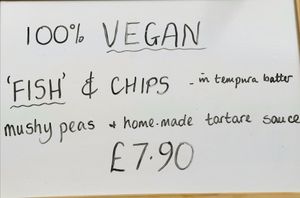 100% VEGAN
'FISH' & CHIPS - in tempura batter
mushy peas + home-made tartare sauce
£7.90